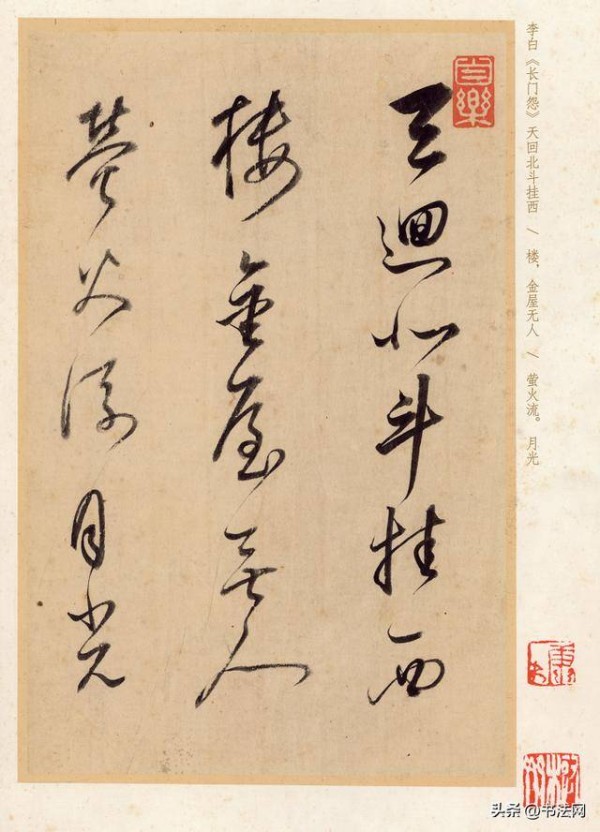 天迴北斗挂西
樓金屋無人
螢火流月光
李白《长门怨》天回北斗挂西 \ 楼，金屋无人 \ 萤火流。 月光
头条 @书法网